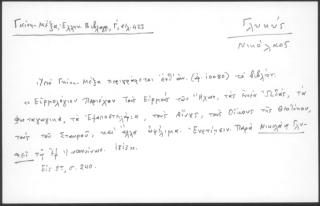 Γκίνη - Μέξα, Ελλην. Βιβλιογρ., Γ', σελ. 423
Γλυκύς
Νικόλαος
Υπό Γκίνη - Μέξα περιγράφεται υπ' αρ. (10080) το βιβλίο:
« Ειρμολόγιον Περιέχον Τους Ειρμούς των Ήχων, τας Εννέα Ωδάς, τα
Φωταγωγικά, τα Εξαποστειλάρια, τους Αίνους, τους Οίκους της Θεοτόκου,
τους του Σταυρού, και άλλα ωφέλιμα. Ενετίησιν. Παρά Νικολάω Γλυ-
κεί τω εξ Ιωαννίνων.
Εις ΣΤ, σ. 240.